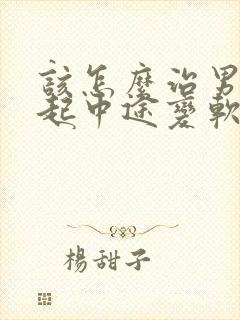 該怎麼治男
起中途變軟
楊甜子